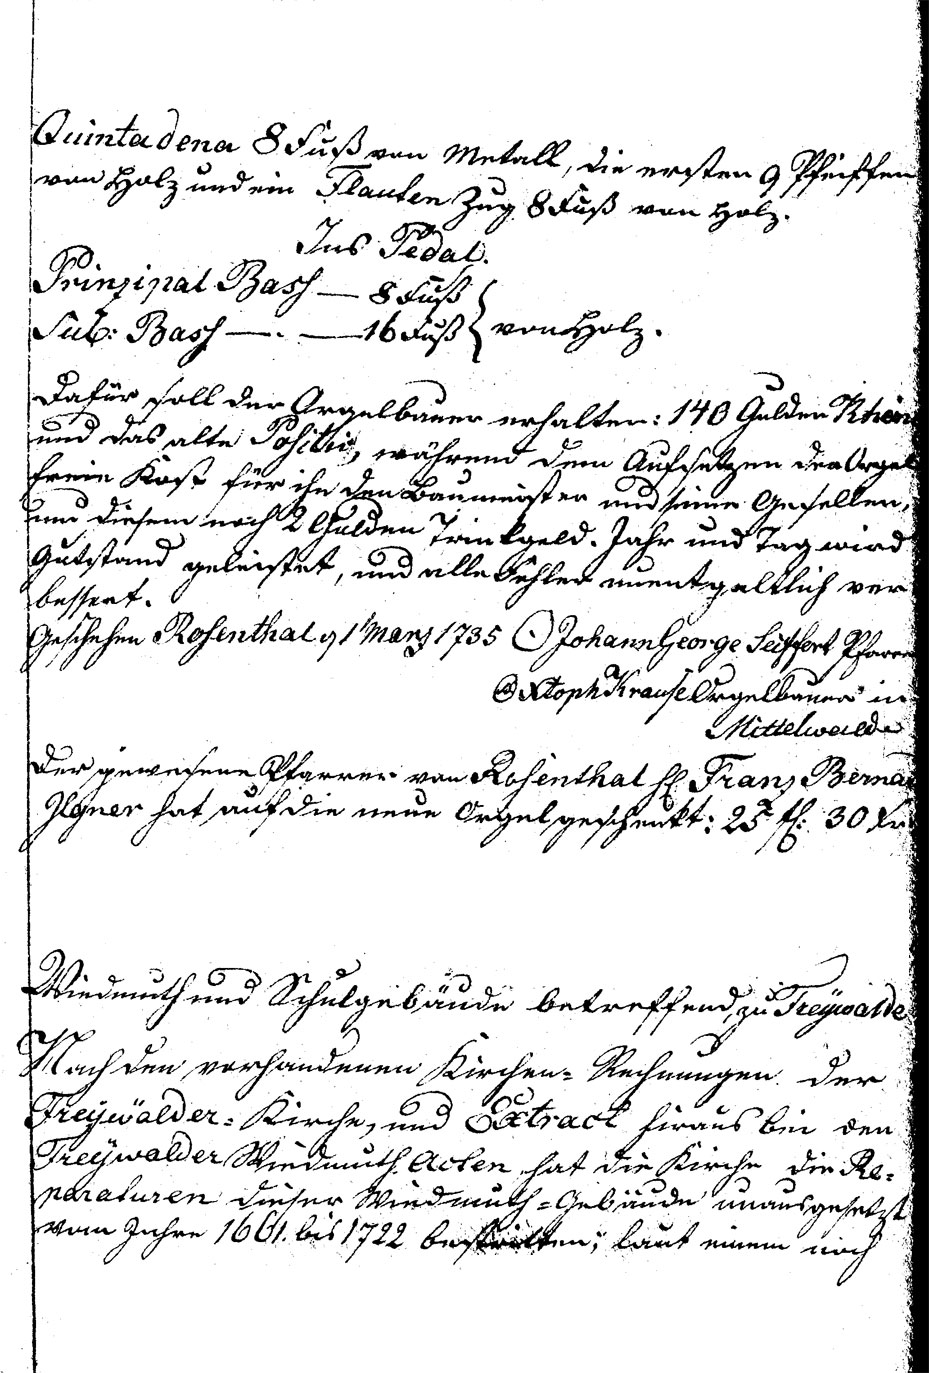 Quintadena 8 Fuß von Metall, die ersten 9 Pfeiffen
von Holz und ein Flauten Zug 8 Fuß von Holz.
Ins Pedal.
Prinzipal Bass — 8 Fuß
Sub: Bass —.— 16 Fuß } von Holz.
Dafür soll der Orgelbauer erhalten: 140 Gulden Rhein
und das alte Positiv, während dem Aufsetzen der Orgel
freie Kost für ihn den Baumeister und seine Gesellen,
und diesem noch 2 Gulden Trinkgeld. Jahr und Tag wird
Gutstand geleistet, und alle Fehler unentgeltlich ver
bessert.
Geschehen Rosenthal 91 März 1735 Johann George Seiffert Pfarrer
Xtoph Krause Orgelbauer in
Mittelwalde
Der gewesene Pfarrer von Rosenthal H. Franz Bernar
Ilgner hat auf die neue Orgel geschenkt: 25 fl: 30 Kr
Wiedmuth und Schulgebäude betreffend, zu Freywalde
Nach den vorhandenen Kirchen- Rechnungen der
Freywälder- Kirche, und Extract hiraus bei den
Freywalder Wiedmuth. Acten hat die Kirche die Re-
paraturen dieser Wiedmuth-Gebäude unausgesetzt
vom Jahre 1661. bis 1722 bestritten; laut einem noch